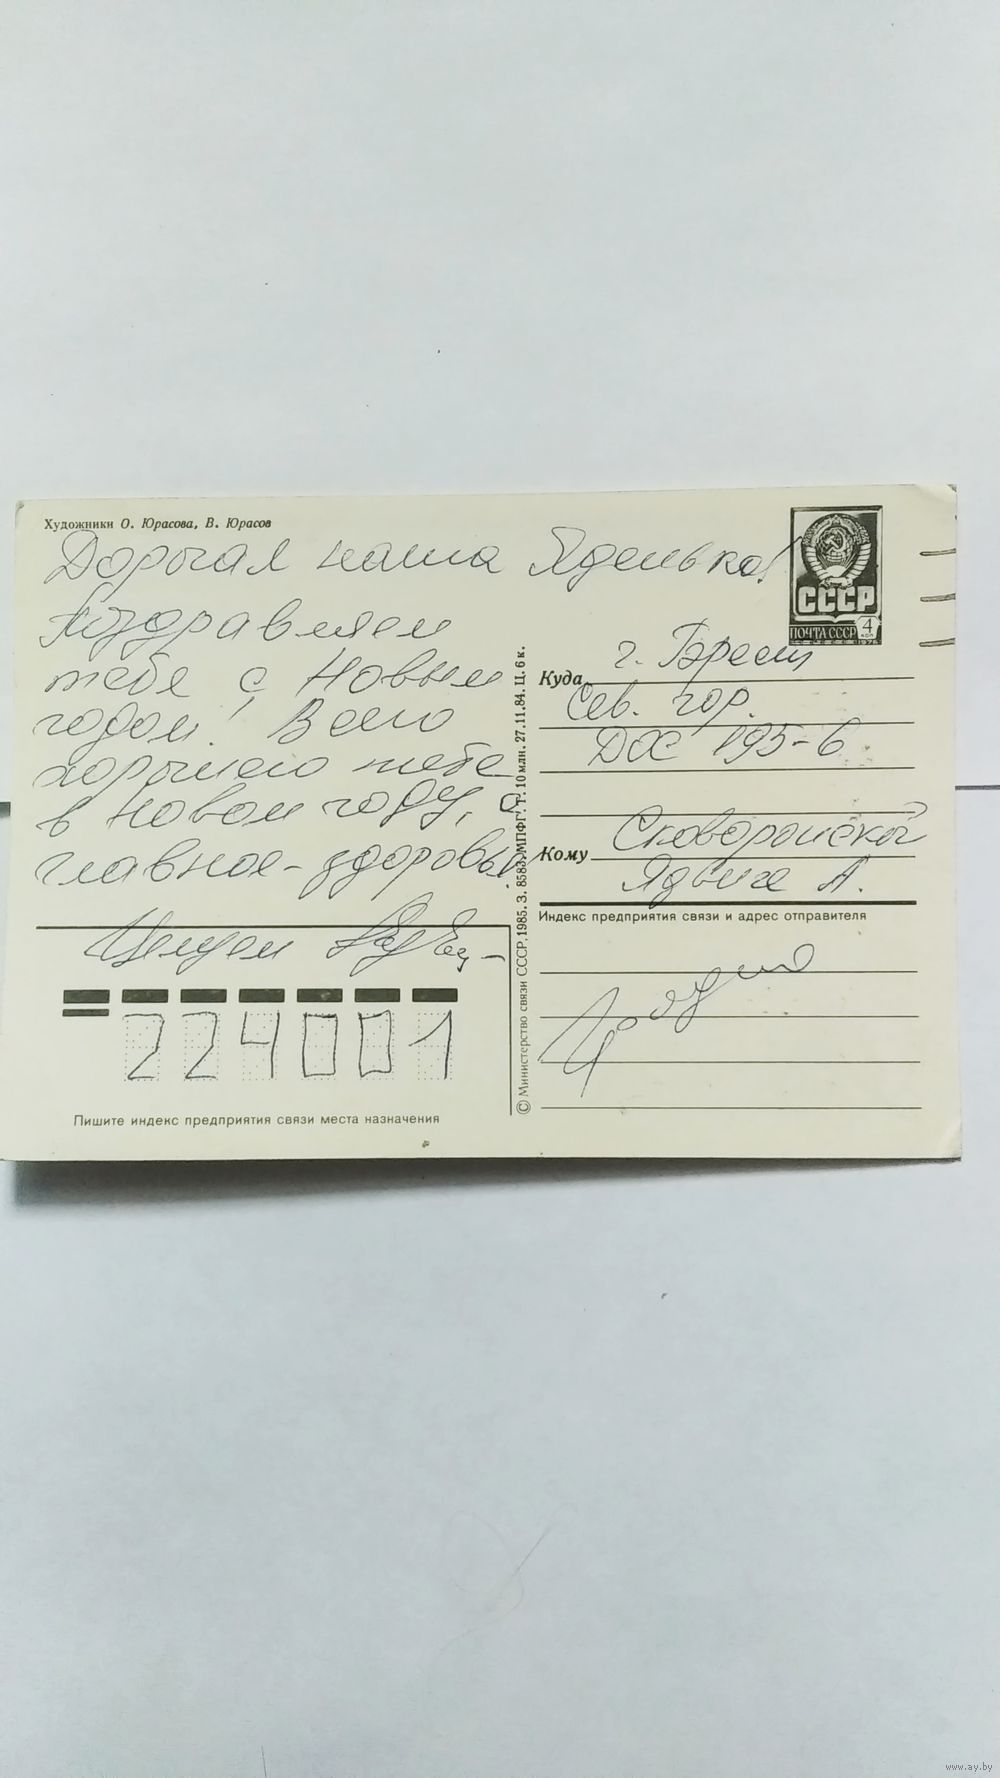 Художники О. Юрасова, В. Юрасов
Дорогая наша Яденька!
Поздравляем
тебя с Новым
годом! Всего
хорошего тебе
в Новом году, а
главное - здоровья
Целуем
224001
Пишите индекс предприятия связи места назначения
© Министерство связи СССР, 1985. З. 8583. МПФГ. Т. 10 млн. 27.11.84. Ц. 6 к.
СССР
ПОЧТА СССР 4 коп
Куда г. Брест
Сев. гор.
ДОС 195-6
Кому
Ядвиге А.
Индекс предприятия связи и адрес отправителя
www.ay.by